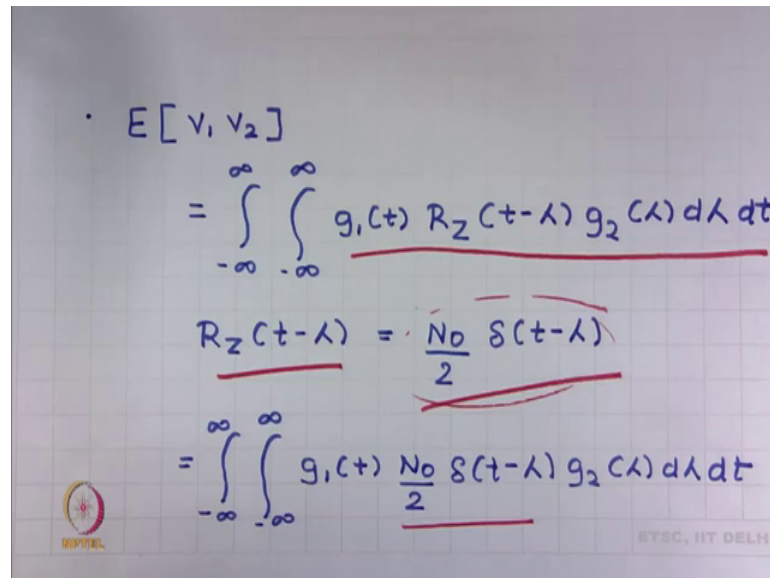 · E [ V₁ V₂ ]
= ∫_{-∞}^{∞} ∫_{-∞}^{∞} g₁(t) R_Z (t-λ) g₂ (λ) dλ dt
R_Z (t-λ) = N₀/2 δ(t-λ)
= ∫_{-∞}^{∞} ∫_{-∞}^{∞} g₁(t) N₀/2 δ(t-λ) g₂ (λ) dλ dt
NPTEL
ETSC, IIT DELH